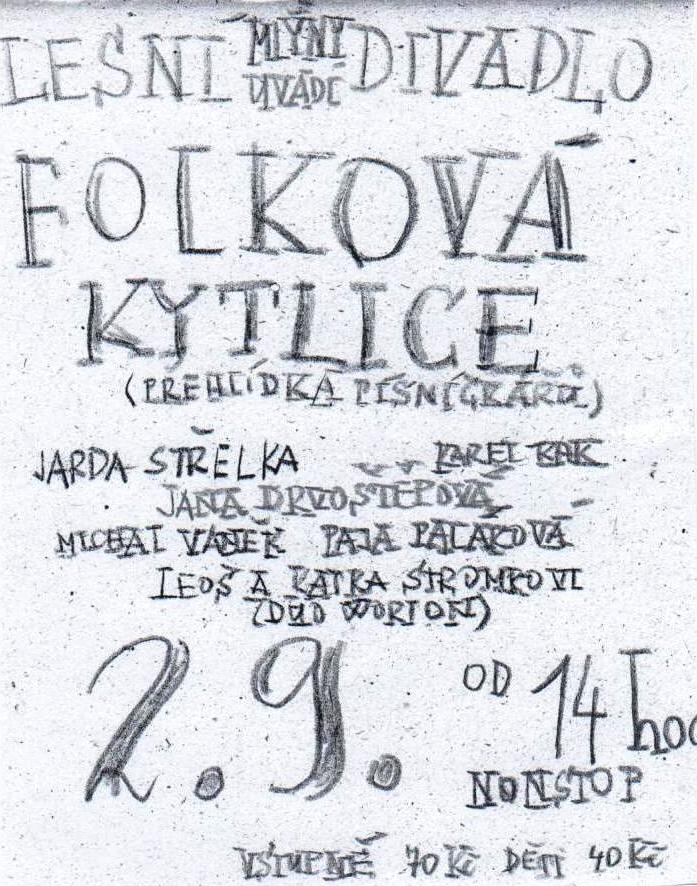 LESNÍ MLÝNY DIVADLO
UVÁDÍ
FOLKOVÁ
KYTLICE
(PŘEHLÍDKA PÍSNÍČKÁŘŮ)
JARDA STŘELKA KAREL RAK
JANA DRVOŠTĚPOVÁ
MICHAL VANĚK PAJA PALAKOVÁ
LEOŠ A KATKA STROMKOVI
(DUO WORTON)
2.9. OD 14 hod
NONSTOP
VSTUPNÉ 70 Kč DĚTI 40 Kč